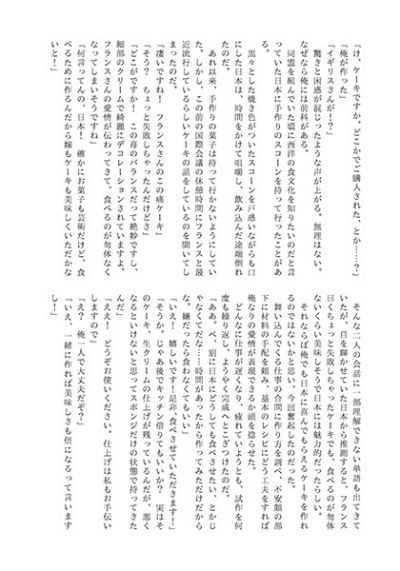 「け、ケーキですか。どこかでご購入された、とか……？」
「俺が作った」
「イギリスさんが！？」
驚きと困惑が混じったような声が上がる。無理はない。
なぜなら俺には前科がある。
同盟を組んでいた頃に西洋の食文化を知りたいのだと言
っていた日本に手作りのスコーンを持って行ったことがあ
る。
黒々とした焼き色がついたスコーンを戸惑いながらも口
にした日本は、時間をかけて咀嚼し、飲み込んだ途端倒れ
たのだ。
あれ以来、手作りの菓子は持って行かないようにしてい
た。しかし、この前の国際会議の休憩時間にフランスと最
近流行しているらしいケーキの話をしているのを聞いてし
まったのだ。
「凄いですね！　フランスさんのこの痛ケーキ」
「そう？　ちょっと失敗しちゃったんだけどさ」
「どこがですか！　この苺のバランスだって絶妙ですし、
細部のクリームまで綺麗にデコレーションされていますよ。
フランスさんの愛情が伝わってきて、食べるのが勿体なく
なってしまいそうですね」
「何言ってんの、日本！　確かにお菓子も芸術だけど、食
べるために作るんだから嫁もケーキも美味しくいただかな
いと！」
そんな二人の会話に一部理解できない単語も出てきて
いたが、目を輝かせていた日本から推測すると、フランス
曰くちょっと失敗しちゃったケーキでも、食べるのが勿体
ないくらい美味しそうで日本には魅力的だったらしい。
それならば俺でも日本に喜んでもらえるケーキを作れ
るのではないかと思い、今回奮起したのだった。
舞い込んでくる仕事の合間に作り方を調べ、不安顔の部
下に材料の手配を頼み、基本のレシピにどう工夫をすれば
俺なりの愛情が表現できるか頭を捻らせた。
どんなに仕事が遅くなり、疲れていようとも、試作を何
度も繰り返し、ようやく完成へとこぎつけたのだ。
「ああ。べ、別に日本にどうしても食べさせたい、とかじ
ゃなくてだな……時間があったから作ってみただけだから
な。嫌だったら食わなくてもいい」
「いえ！　嬉しいです！是非、食べさせていただきます！」
「そうか。じゃあ後でキッチン借りてもいいか？　実はそ
のケーキ、生クリームの仕上げが残っているんだが、悪く
なるといけないと思ってスポンジだけの状態で持ってきた
んだ」
「ええ！　どうぞお使いください。仕上げは私もお手伝い
しますので」
「え？　俺一人で大丈夫だぞ？」
「いえ、一緒に作れば美味しさも倍になるって言います
し！」